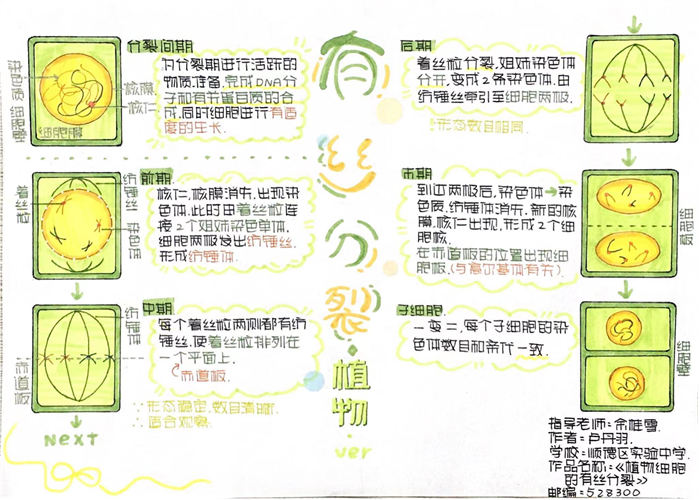 有丝分裂
·植物·
ver
分裂间期
为分裂期进行活跃的
物质准备,完成DNA分
子和有关蛋白质的合
成,同时细胞进行有适
度的生长.
染色质
细胞壁
核膜
核仁
细胞膜
前期
核仁、核膜消失,出现染
色体,此时由着丝粒连
接2个姐妹染色单体.
细胞两极发出纺锤丝,
形成纺锤体.
着丝粒
纺锤丝
染色体
中期
每个着丝粒两侧都有纺
锤丝,使着丝粒排列在
一个平面上.
赤道板.
∵形态稳定,数目清晰.
∴适合观察.
纺锤体
赤道板
NEXT
后期
着丝粒分裂,姐妹染色体
分开,变成2条染色体,由
纺锤丝牵引至细胞两极.
形态数目相同.
末期
到达两极后,染色体→染色
质,纺锤体消失,新的核
膜、核仁出现,形成2个细
胞核.
在赤道板的位置出现细
胞板.(与高尔基体有关)
细胞板
子细胞
一变二,每个子细胞的染
色体数目和亲代一致.
细胞壁
指导老师:余桂雪.
作者:卢丹羽.
学校:顺德区实验中学.
作品名称:《植物细胞
的有丝分裂》
邮编:528300